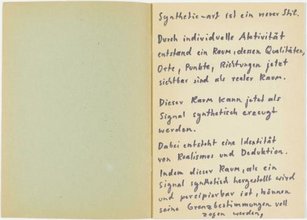 Synthetic-art sei ein neuer Stil.
Durch individuelle Aktivität
entstand ein Raum, dessen Qualitäten,
Orte, Punkte, Richtungen jetzt
sichtbar sind als realer Raum.
Dieser Raum kann jetzt als
Signal synthetisch erzeugt
werden.
Dabei entsteht eine Identität
von Realismus und Deduktion.
Indem dieser Raum, als ein
Signal synthetisch hergestellt wird
und perzipierbar ist, können
seine Grenzbestimmungen voll
zogen werden,